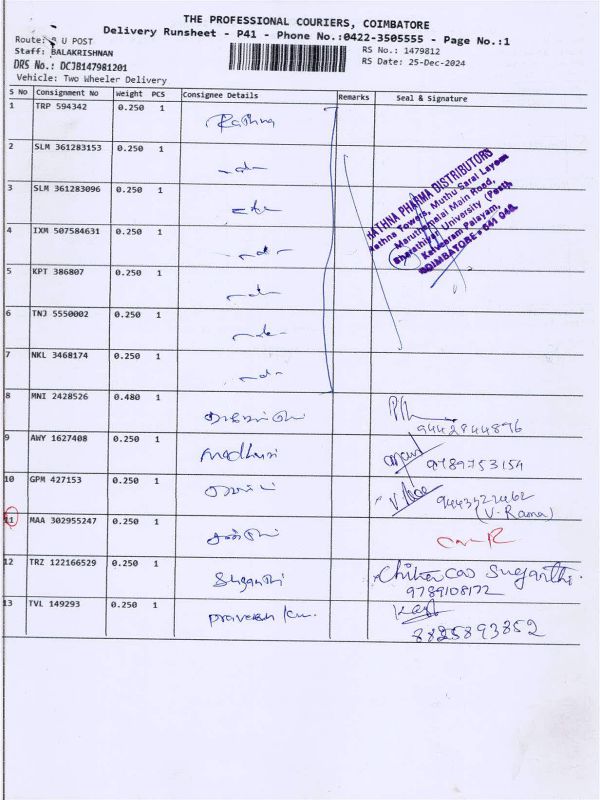 THE PROFESSIONAL COURIERS, COIMBATORE
Delivery Runsheet - P41 - Phone No.:0422-3505555 - Page No.:1
Route: U POST
RS No.: 1479812
Staff: BALAKRISHNAN
RS Date: 25-Dec-2024
DRS No.: DCJB147981201
Vehicle: Two Wheeler Delivery
S No Consignment No Weight PCS Consignee Details Remarks Seal & Signature
1 TRP 594342 0.250 1 Rathna
2 SLM 361283153 0.250 1 -do-
3 SLM 361283096 0.250 1 -do-
4 IXM 507584631 0.250 1 -do-
5 KPT 386807 0.250 1 -do-
6 TNJ 5550002 0.250 1 -do-
7 NKL 3468174 0.250 1 -do-
RATHNA PHARMA DISTRIBUTORS
Rathna Towers, Muthu Saral Layout
Maruthamalai Main Road,
Bharathiyar University (Post),
Kalveeram Palayam,
COIMBATORE - 641 046.
8 MNI 2428526 0.480 1
9442844896
9 AWY 1627408 0.250 1 Madhuri
9789753154
10 GPM 427153 0.250 1
9443522462
(V. Rama)
11 MAA 302955247 0.250 1
12 TRZ 122166529 0.250 1 Suganthi
Suganthi
9789108172
13 TVL 149293 0.250 1 praveen
8825893852